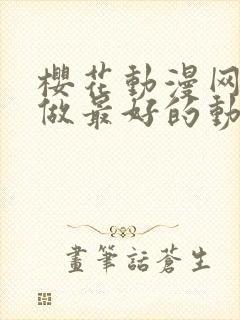 櫻花動漫网
做最好的動
畫筆話蒼生